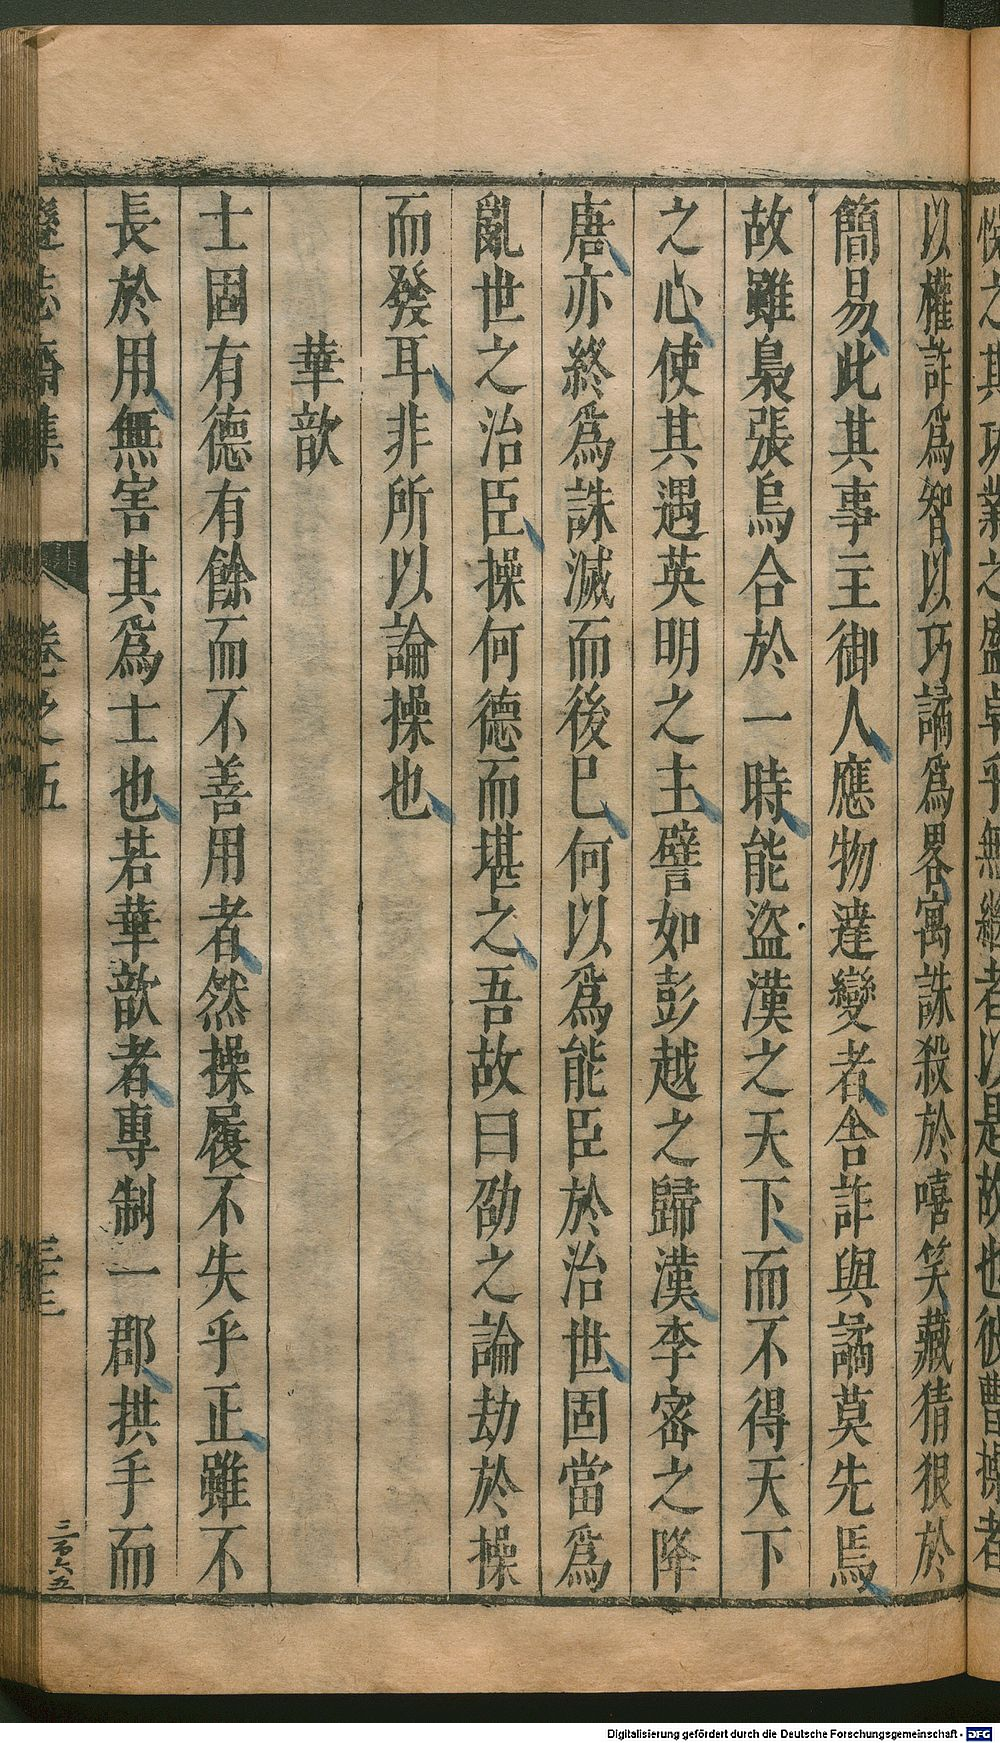 悅之其功業之盛卓乎無繼者以是故也彼曹操者
以權詐爲智以巧譎爲畧寓誅殺於嘻笑藏猜狠於
簡易此其事主御人應物達變者舍詐與譎莫先焉
故雖梟張烏合於一時能盜漢之天下而不得天下
之心使其遇英明之主譬如彭越之歸漢李密之降
唐亦終爲誅滅而後巳何以爲能臣於治世固當爲
亂世之治臣操何德而堪之吾故曰劭之論劫於操
而發耳非所以論操也
華歆
士固有德有餘而不善用者然操履不失乎正雖不
長於用無害其爲士也若華歆者專制一郡拱手而
遜志齋集 卷之五 三十三
三百六五
Digitalisierung gefördert durch die Deutsche Forschungsgemeinschaft - DFG